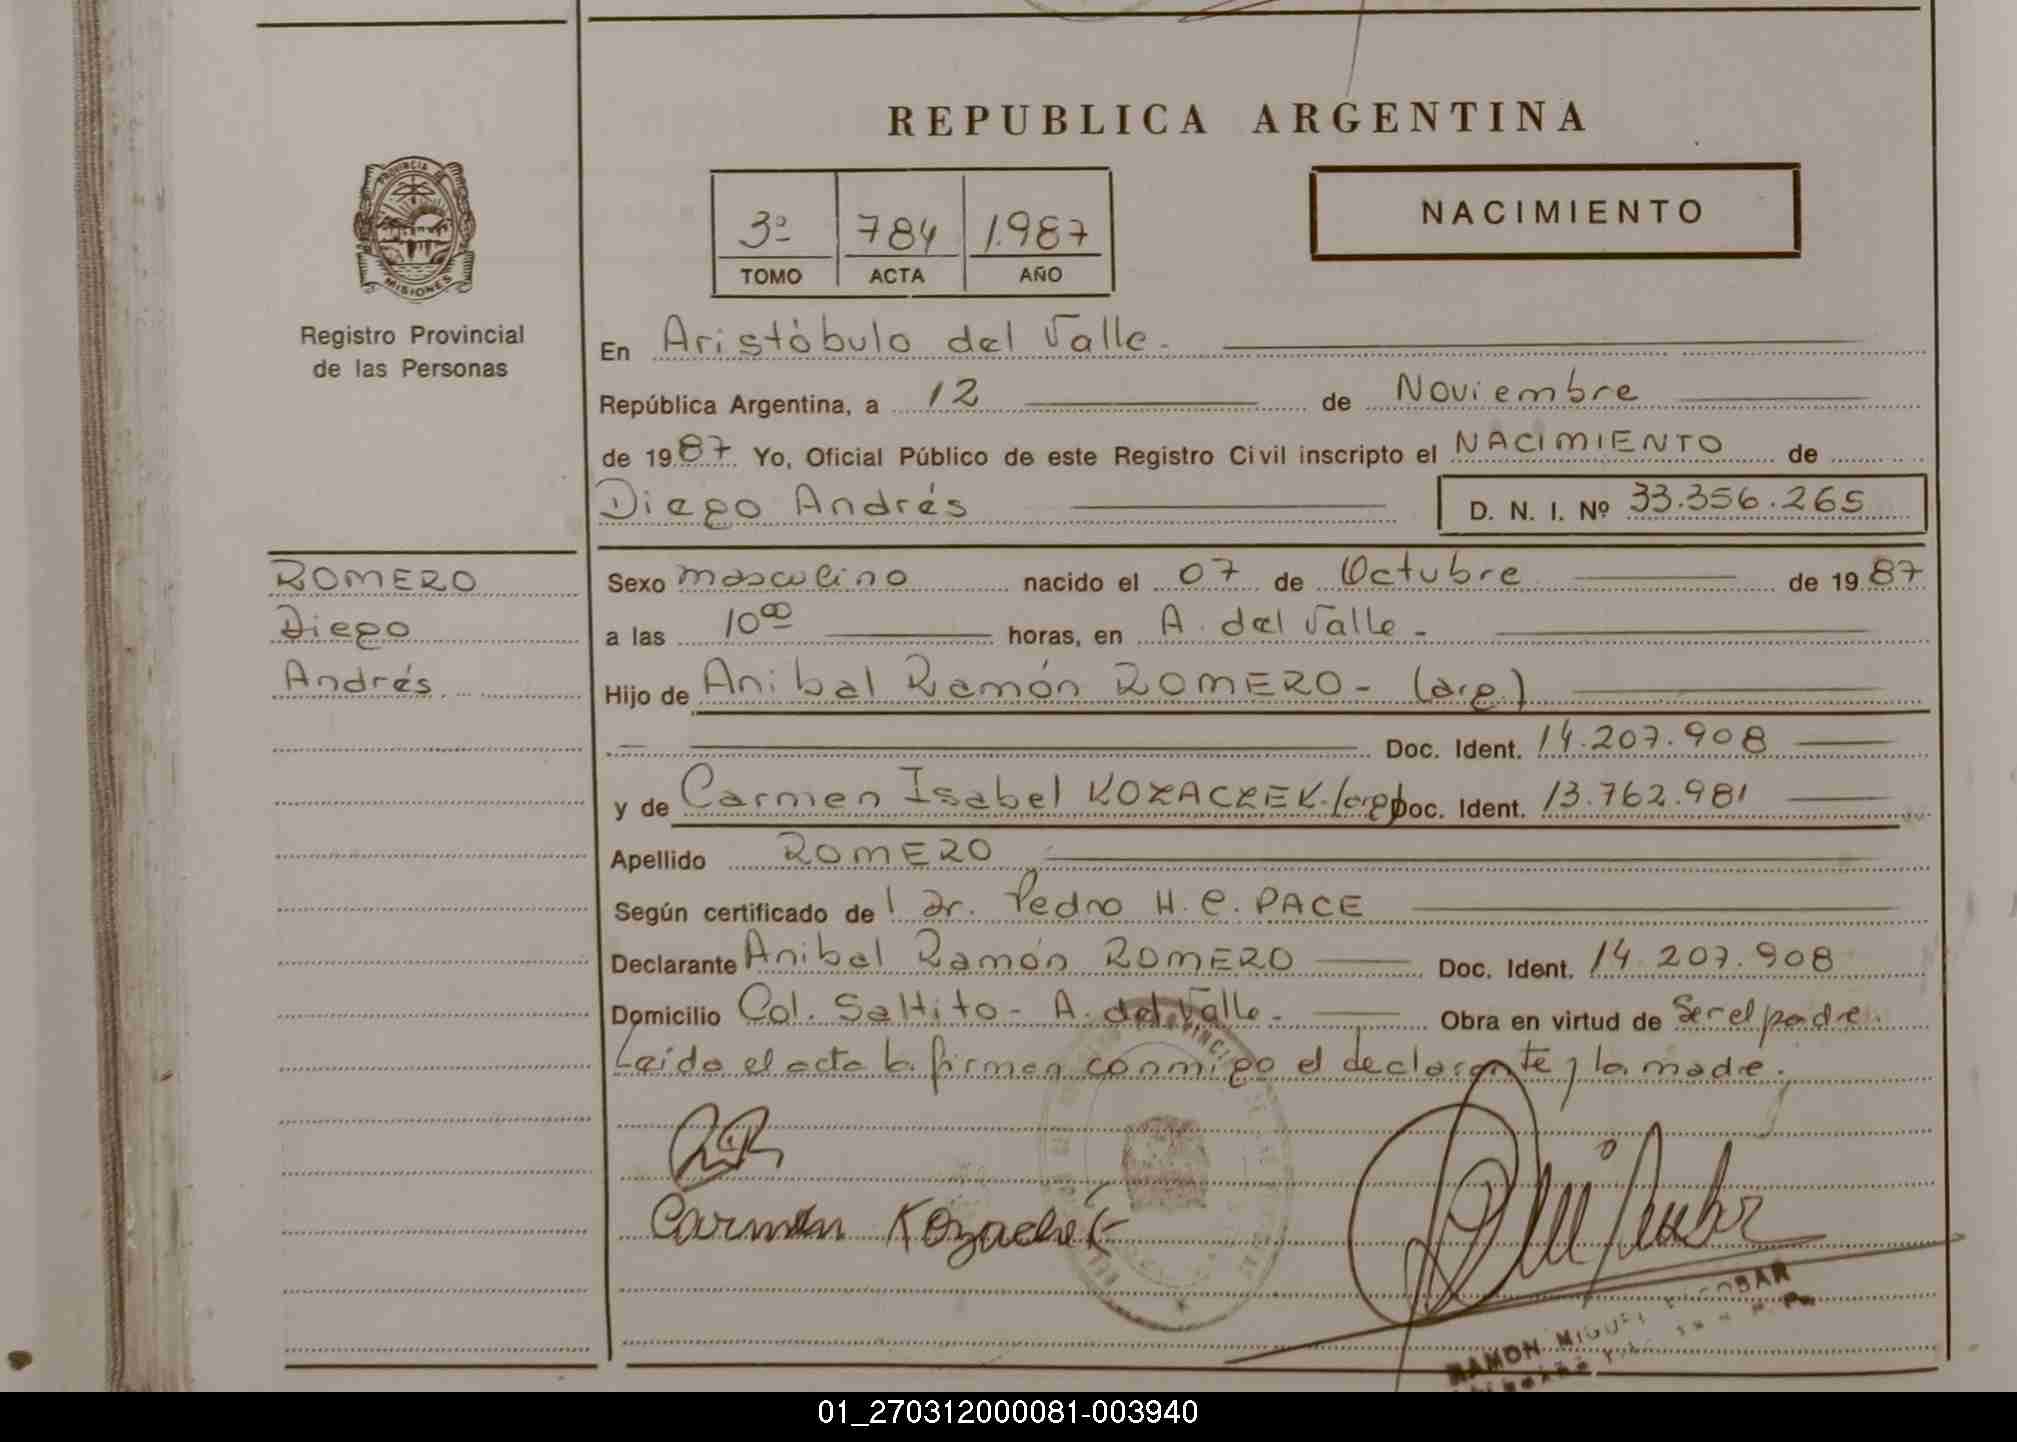 REPUBLICA ARGENTINA
NACIMIENTO
3º 784 1.987
TOMO ACTA AÑO
PROVINCIA DE
MISIONES
Registro Provincial
de las Personas
En Aristóbulo del Valle.
República Argentina, a 12 de Noviembre
de 1987 Yo, Oficial Público de este Registro Civil inscripto el NACIMIENTO de
Diego Andrés D. N. I. Nº 33.356.265
ROMERO
Diego
Andrés
Sexo masculino nacido el 07 de Octubre de 1987
a las 10⁰⁰ horas, en A. del Valle.
Hijo de Anibal Ramón ROMERO - (arg.)
Doc. Ident. 14.207.908
y de Carmen Isabel KOZACZEK. (arg) Doc. Ident. 13.762.981
Apellido ROMERO
Según certificado del Dr. Pedro H. C. PACE
Declarante Anibal Ramón ROMERO Doc. Ident. 14.207.908
Domicilio Col. Saltito - A. del Valle. Obra en virtud de Ser el padre.
Leído el acta la firman conmigo el declarante y la madre.
Carmen Kozachek
RAMON MIGUEL
01_270312000081-003940